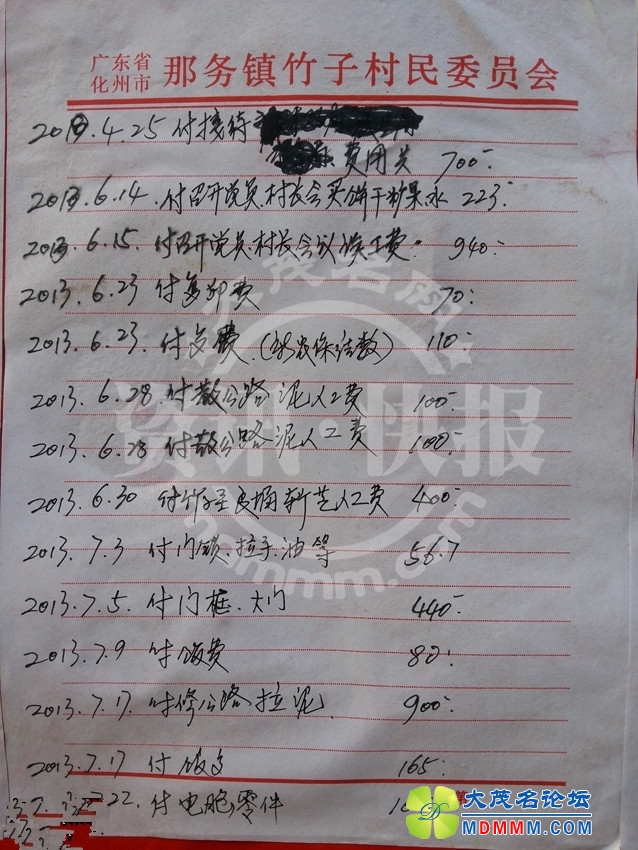 广东省
化州市
那务镇竹子村民委员会
2013.4.25 付接待
费用共 700
2013.6.14. 付召开党员.村长会买饼干糖果水 223
2013.6.15. 付召开党员.村长会议误工费 940
2013.6.23 付复印费 70
2013.6.23. 付 费 (新农保 数) 110
2013.6.28. 付散公路泥人工费 100
2013.6.28 付散公路泥人工费 100
2013.6.30 付竹 良 斩 人工费 400
2013.7.3 付门锁.拉手.油等 56.7
2013.7.5. 付门框.大门 440
2013.7.9 付饭费 80
2013.7.17. 付修公路拉泥 900
2013.7.17 付饭 165
22. 付电脑零件
大茂名论坛
MDMMM.COM
资讯快报